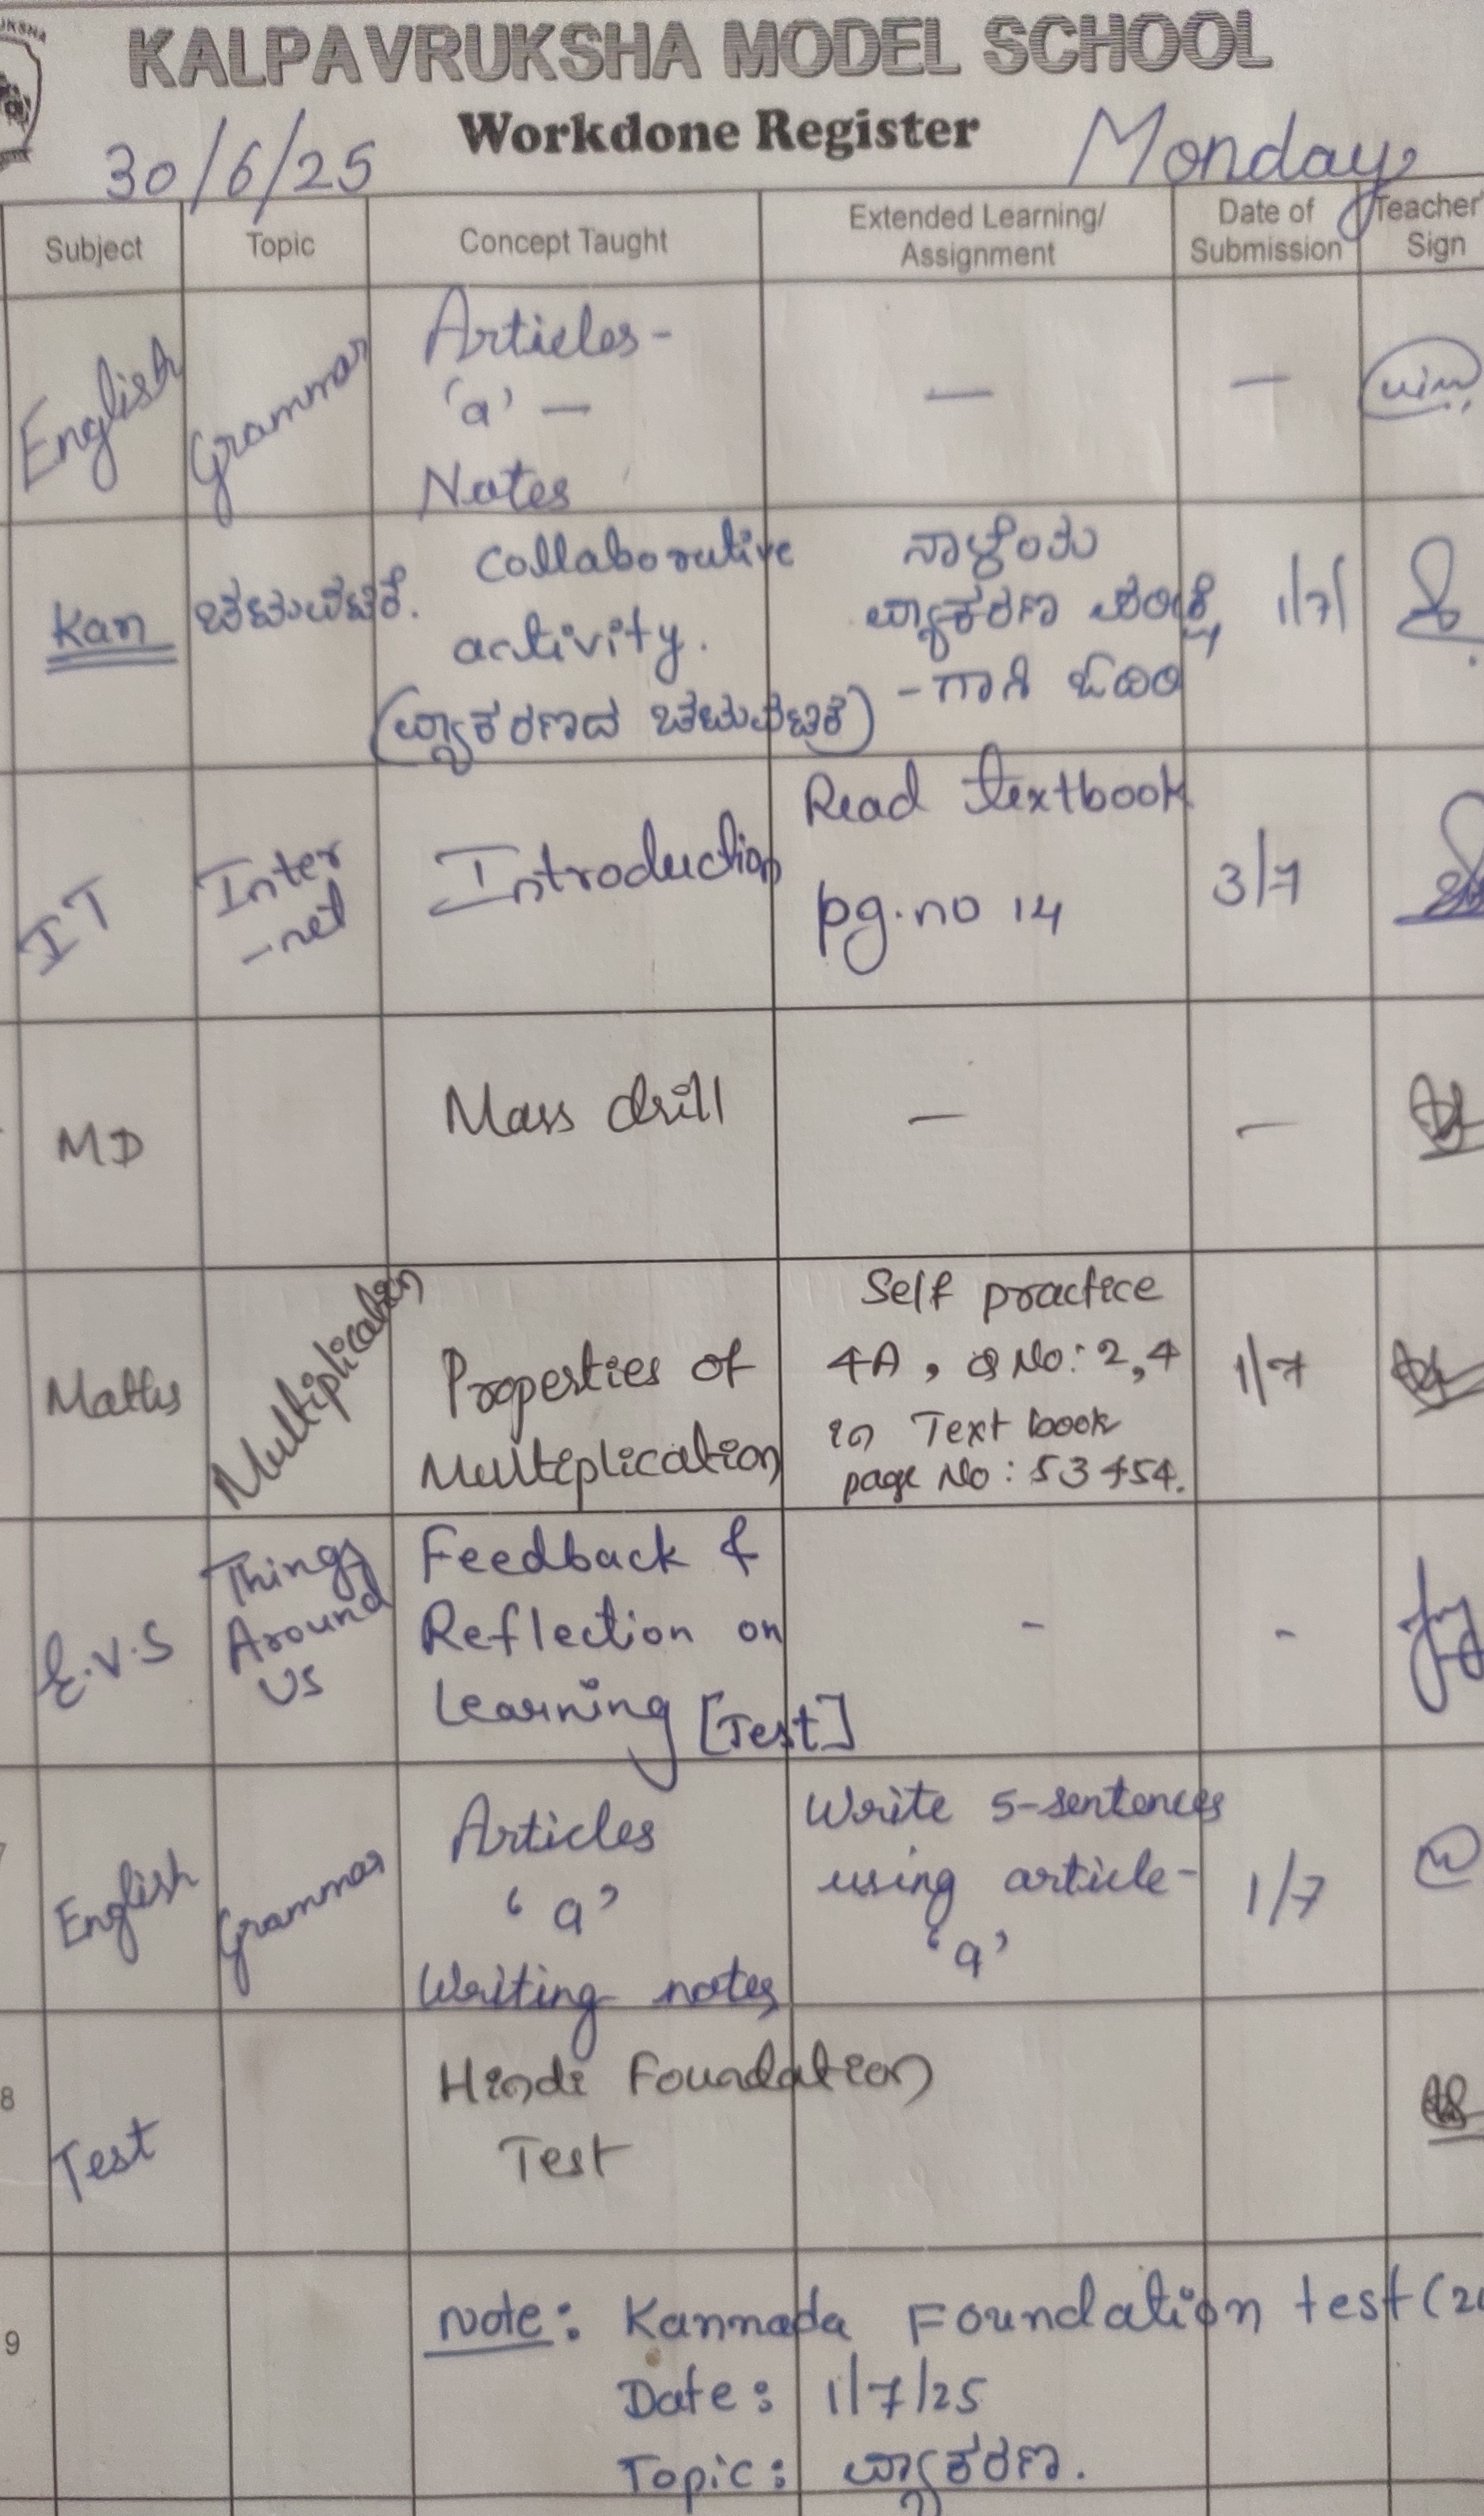 KALPAVRUKSHA MODEL SCHOOL
Workdone Register
30/6/25
Monday
Subject
Topic
Concept Taught
Extended Learning/
Assignment
Date of
Submission
Teacher'
Sign
English
Grammar
Articles -
'a' —
Notes
—
—
Kan
ಚಟುವಟಿಕೆ.
Collaborative
activity.
(ವ್ಯಾಕರಣದ ಚಟುವಟಿಕೆ)
ವ್ಯಾಕರಣ
-ಗಾಗಿ ಓದಿರಿ
1/7/
IT
Inter
-net
Introduction
Read textbook
pg.no 14
3/7
MD
Mass drill
—
—
Maths
Multiplication
Properties of
Multiplication
Self practice
4A, Q No: 2,4
in Text book
page No: 53 +54.
1/7
E.V.S
Things
Around
US
Feedback &
Reflection on
learning [Test]
-
-
English
Grammar
Articles
'a'
Writing notes
Write 5-sentences
using article-
'a'
1/7
8
Test
Hindi Foundation
Test
9
Note: Kannada Foundation test (
Date: 1/7/25
Topic: ವ್ಯಾಕರಣ.